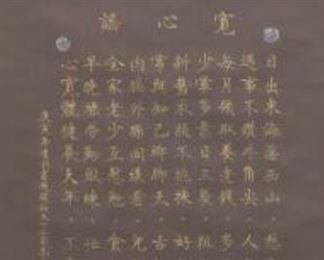 寬心謠
日出東海落西山。愁
遇事不鑽牛角尖。人
每月領取養老錢。多
少葷多素日三餐。粗
新舊衣服不挑揀。好
常與知己聊聊天。古
內孫外孫同樣看。兒
全家老少互慰勉。貧
早晚操勞勤鍛煉。忙
心寬體健養天年。不
庚寅年